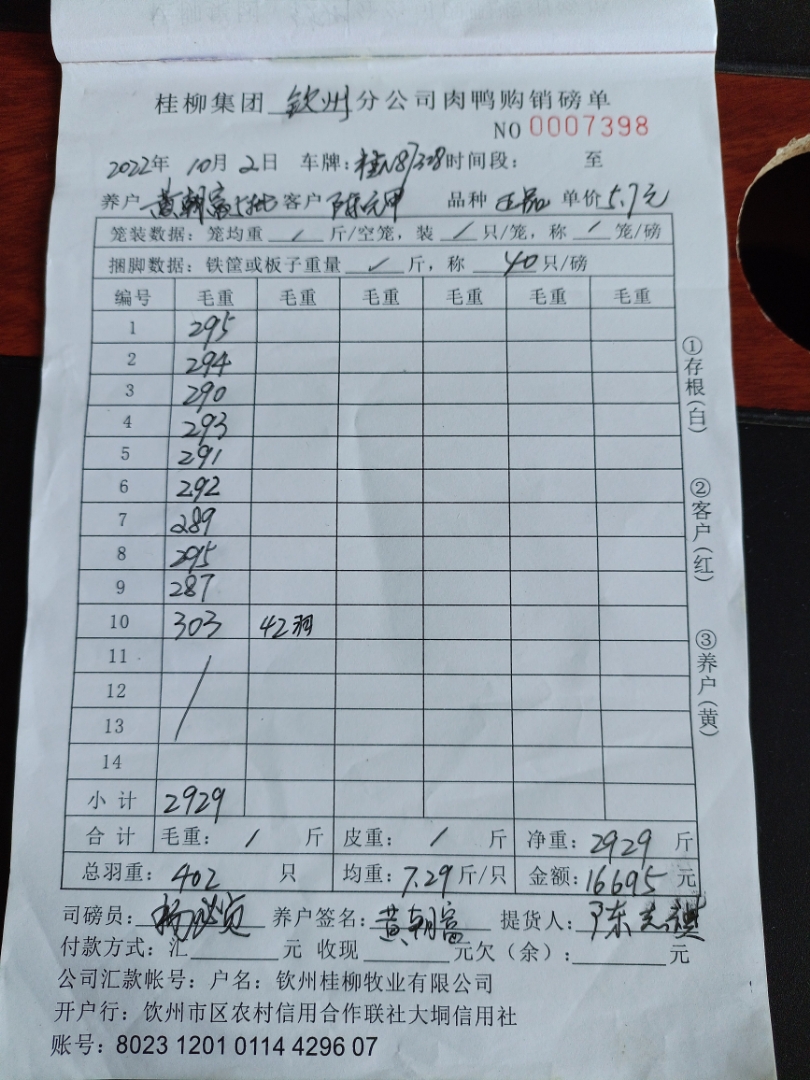 桂柳集团 钦州 分公司肉鸭购销磅单
NO 0007398
2022年 10月 2日 车牌: 时间段: 至
养户 黄朝富 客户 陈元甲 品种 王品 单价 5.7元
笼装数据: 笼均重 / 斤/空笼, 装 / 只/笼, 称 / 笼/磅
捆脚数据: 铁筐或板子重量 / 斤, 称 40 只/磅
编号 毛重 毛重 毛重 毛重 毛重 毛重
1 295
2 294
3 290
4 293
5 291
6 292
7 289
8 295
9 287
10 303 42羽
11
12 /
13
14
小计 2929
合计 毛重: / 斤 皮重: / 斤 净重: 2929 斤
总羽重: 402 只 均重: 7.29 斤/只 金额: 16695 元
司磅员: 养户签名: 黄朝富 提货人: 陈
付款方式: 汇 元 收现 元欠(余): 元
公司汇款帐号: 户名: 钦州桂柳牧业有限公司
开户行: 钦州市区农村信用合作联社大垌信用社
账号: 8023 1201 0114 4296 07
①存根(白)
②客户(红)
③养户(黄)